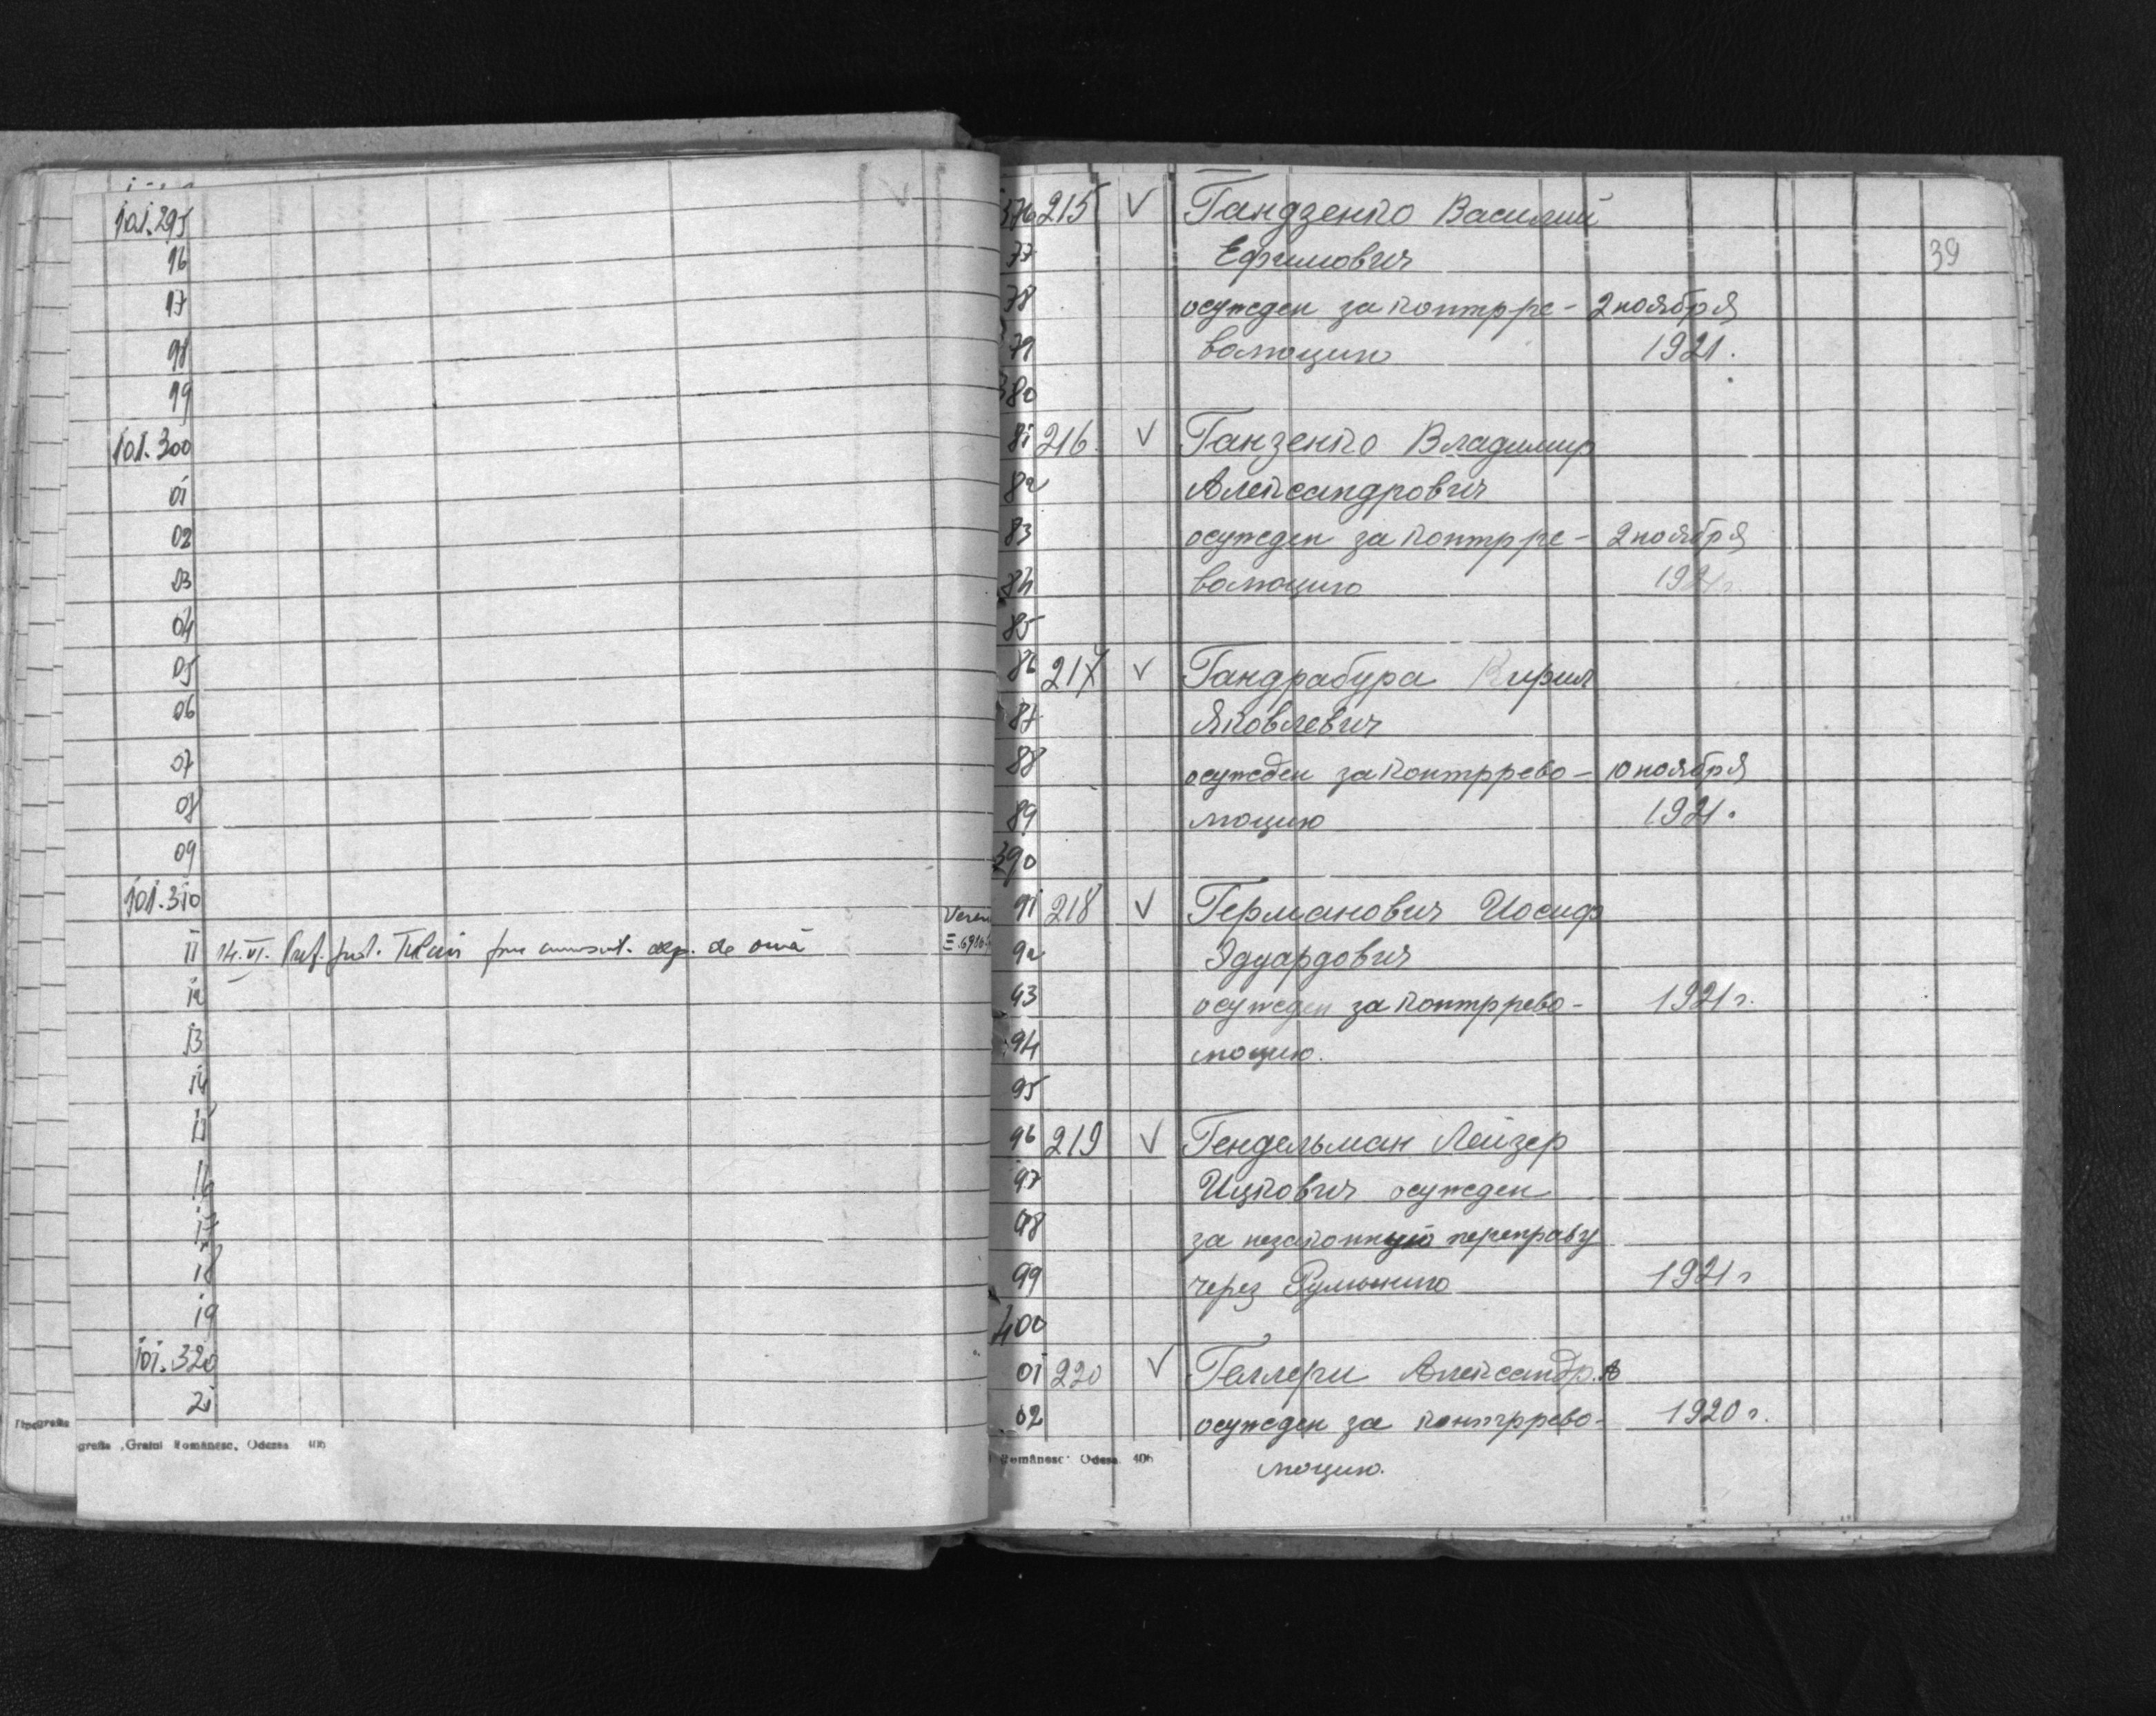 101.295
96
97
98
99
101.300
01
02
03
04
05
06
07
08
09
101.310
11 14.VI. de
12
13
14
15
16
17
18
19
101.320
21
Tipografia
grafia „Graiul Românesc, Odessa 406
39
376 215 V Гандзенко Василий
77 Ефимович
78 осужден за контрре- 2 ноября
79 волюцию 1921.
380
81 216. V Ганзенко Владимир
82 Александрович
83 осужден за контрре- 2 ноября
84 волюцию 1921 г
85
86 217 V Гандрабура Кирил
87 Яковлевич
88 осужден за контррево- 10 ноября
89 люцию 1921.
390
91 218 V Германович Иосиф
92 Эдуардович
93 осужден за контррево- 1921 г.
94 люцию.
95
96 219 V Гендельман Лейзер
97 Ицкович осужден
98 за незаконную переправу
99 через Румынию 1921 г
400
01 220 V Геллери Александр. А
02 осужден за контррево- 1920 г.
Românesc" Odesa. 406
люцию.